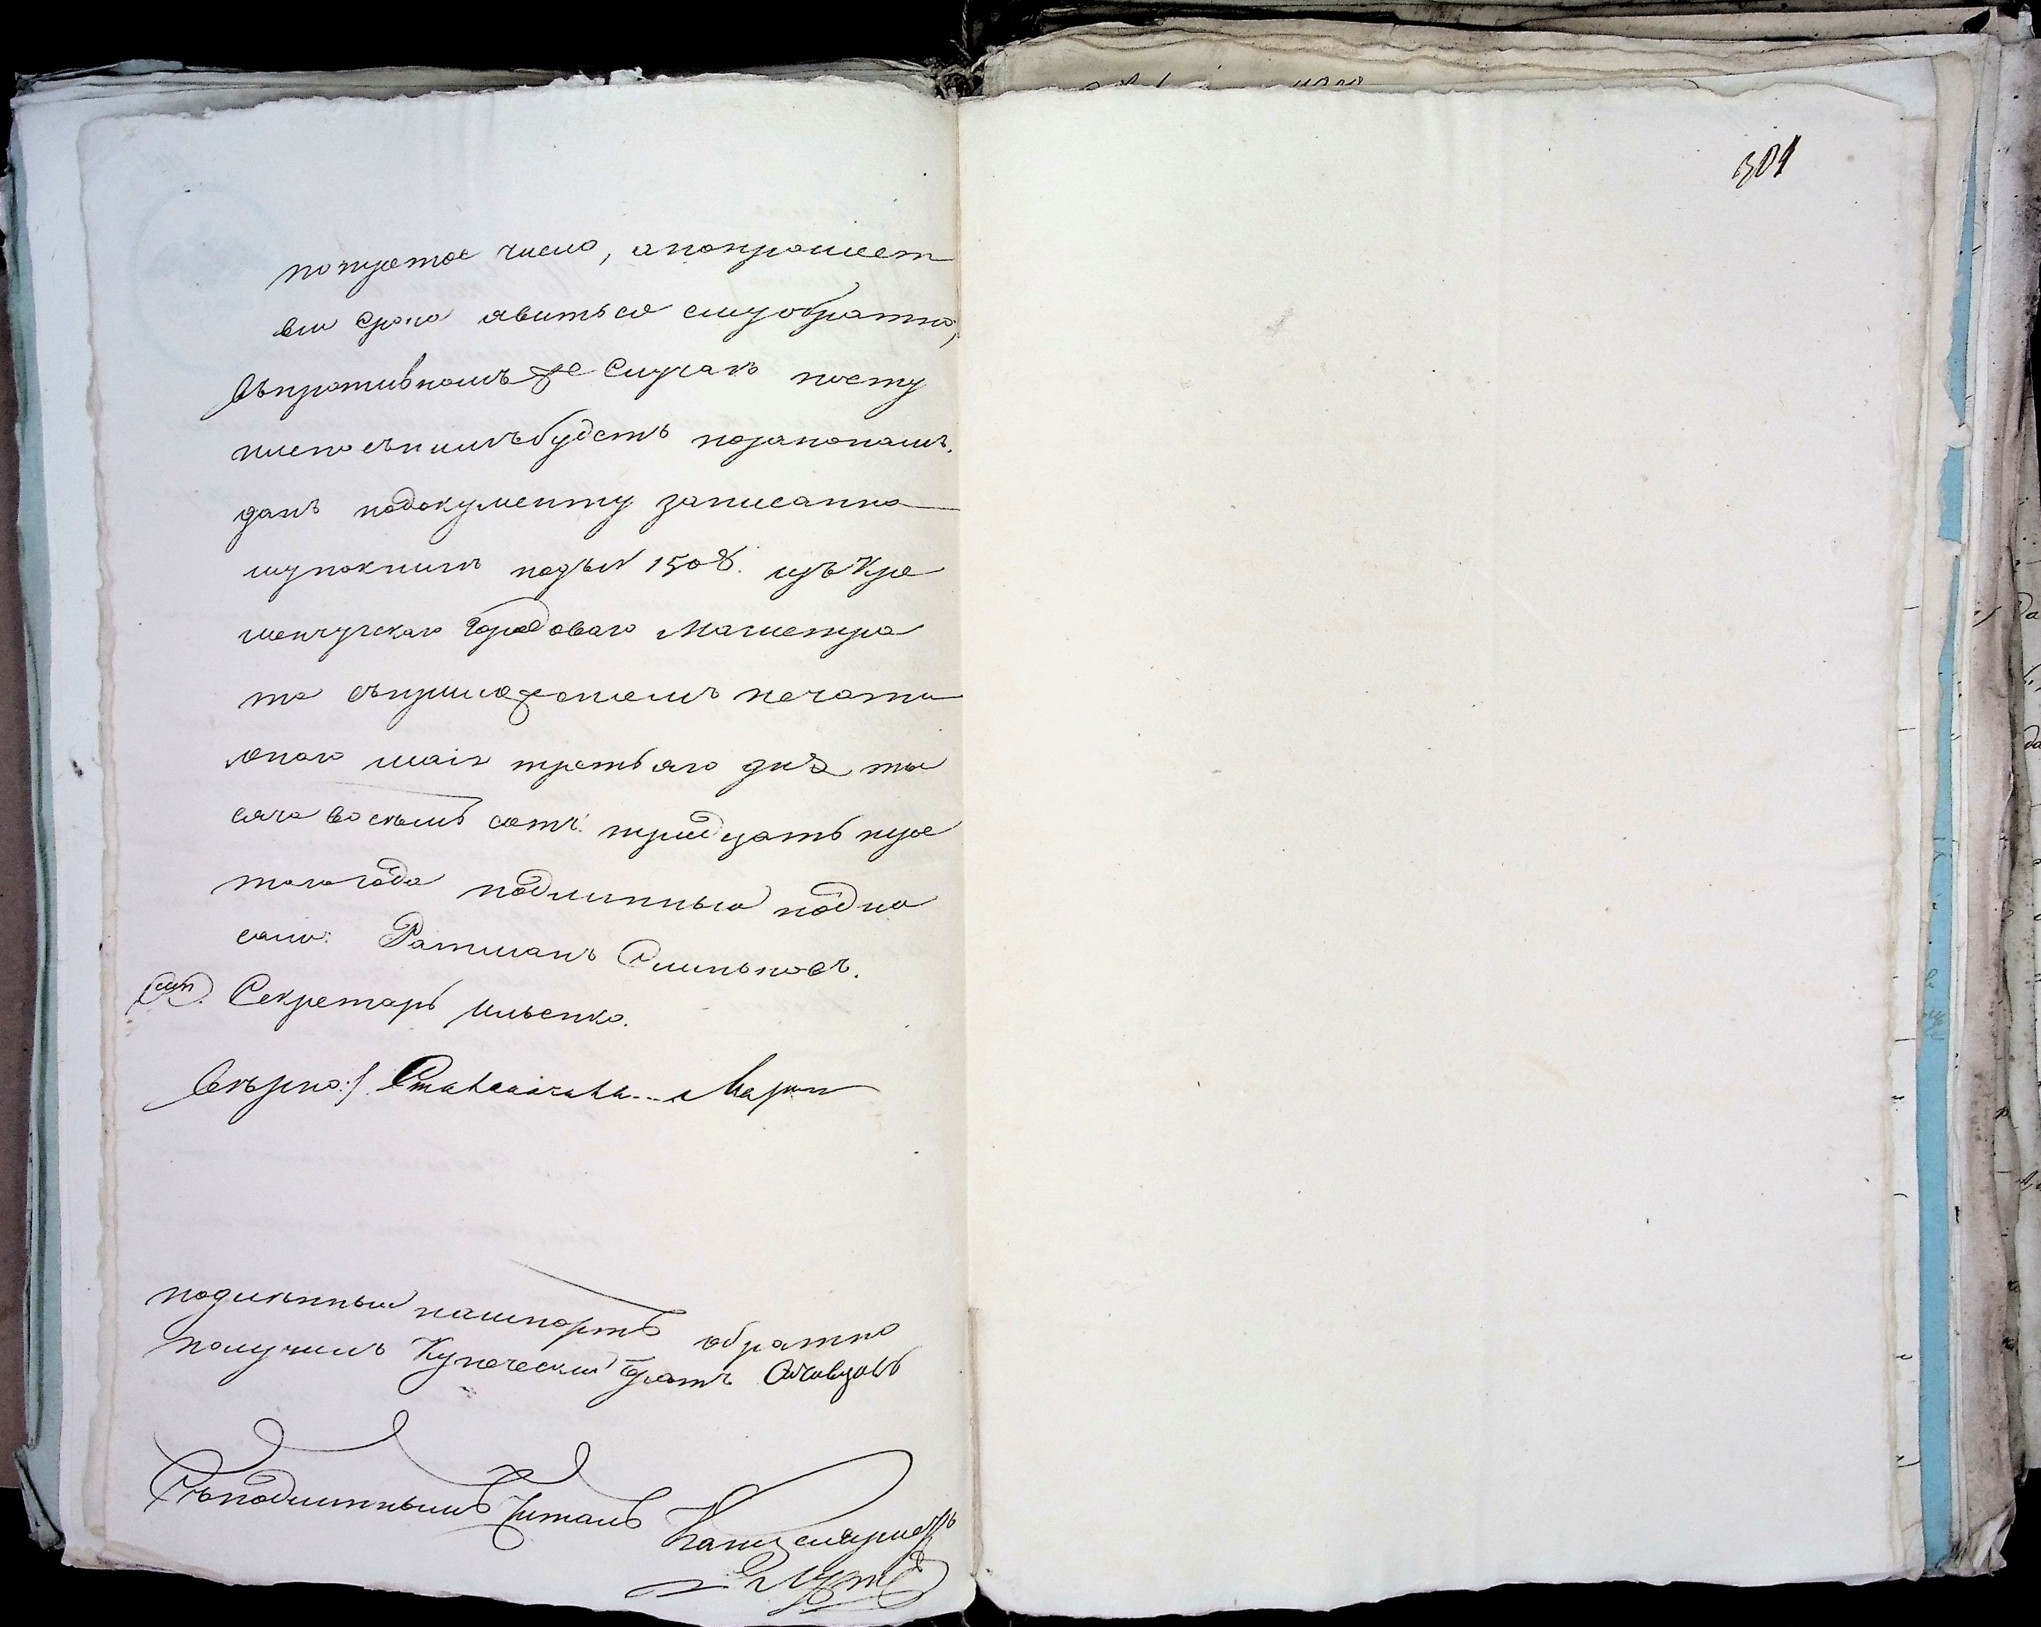 301
потретое число, апопрошест
ви срока явиться ему обратно,
въпротивномъ же случаѣ посту
плено съ нимъ будетъ позаконамъ.
данъподокументу записанно
му покниги подъ № 1508. изъ Кре
менчугскаго Городоваго Магистра
та съприложениемъ печати
онаго маія третьяго дня ты
сяча восемь сотъ тридцать пе
таго года подлинный подпи
сали: Ратманъ Слинковъ.
Секретарь Ильенко.
Вѣрно:
подлинный пашпортъ обратно
получилъ Купеческий братъ
Съподлиннымъ читалъ Канцеляристъ